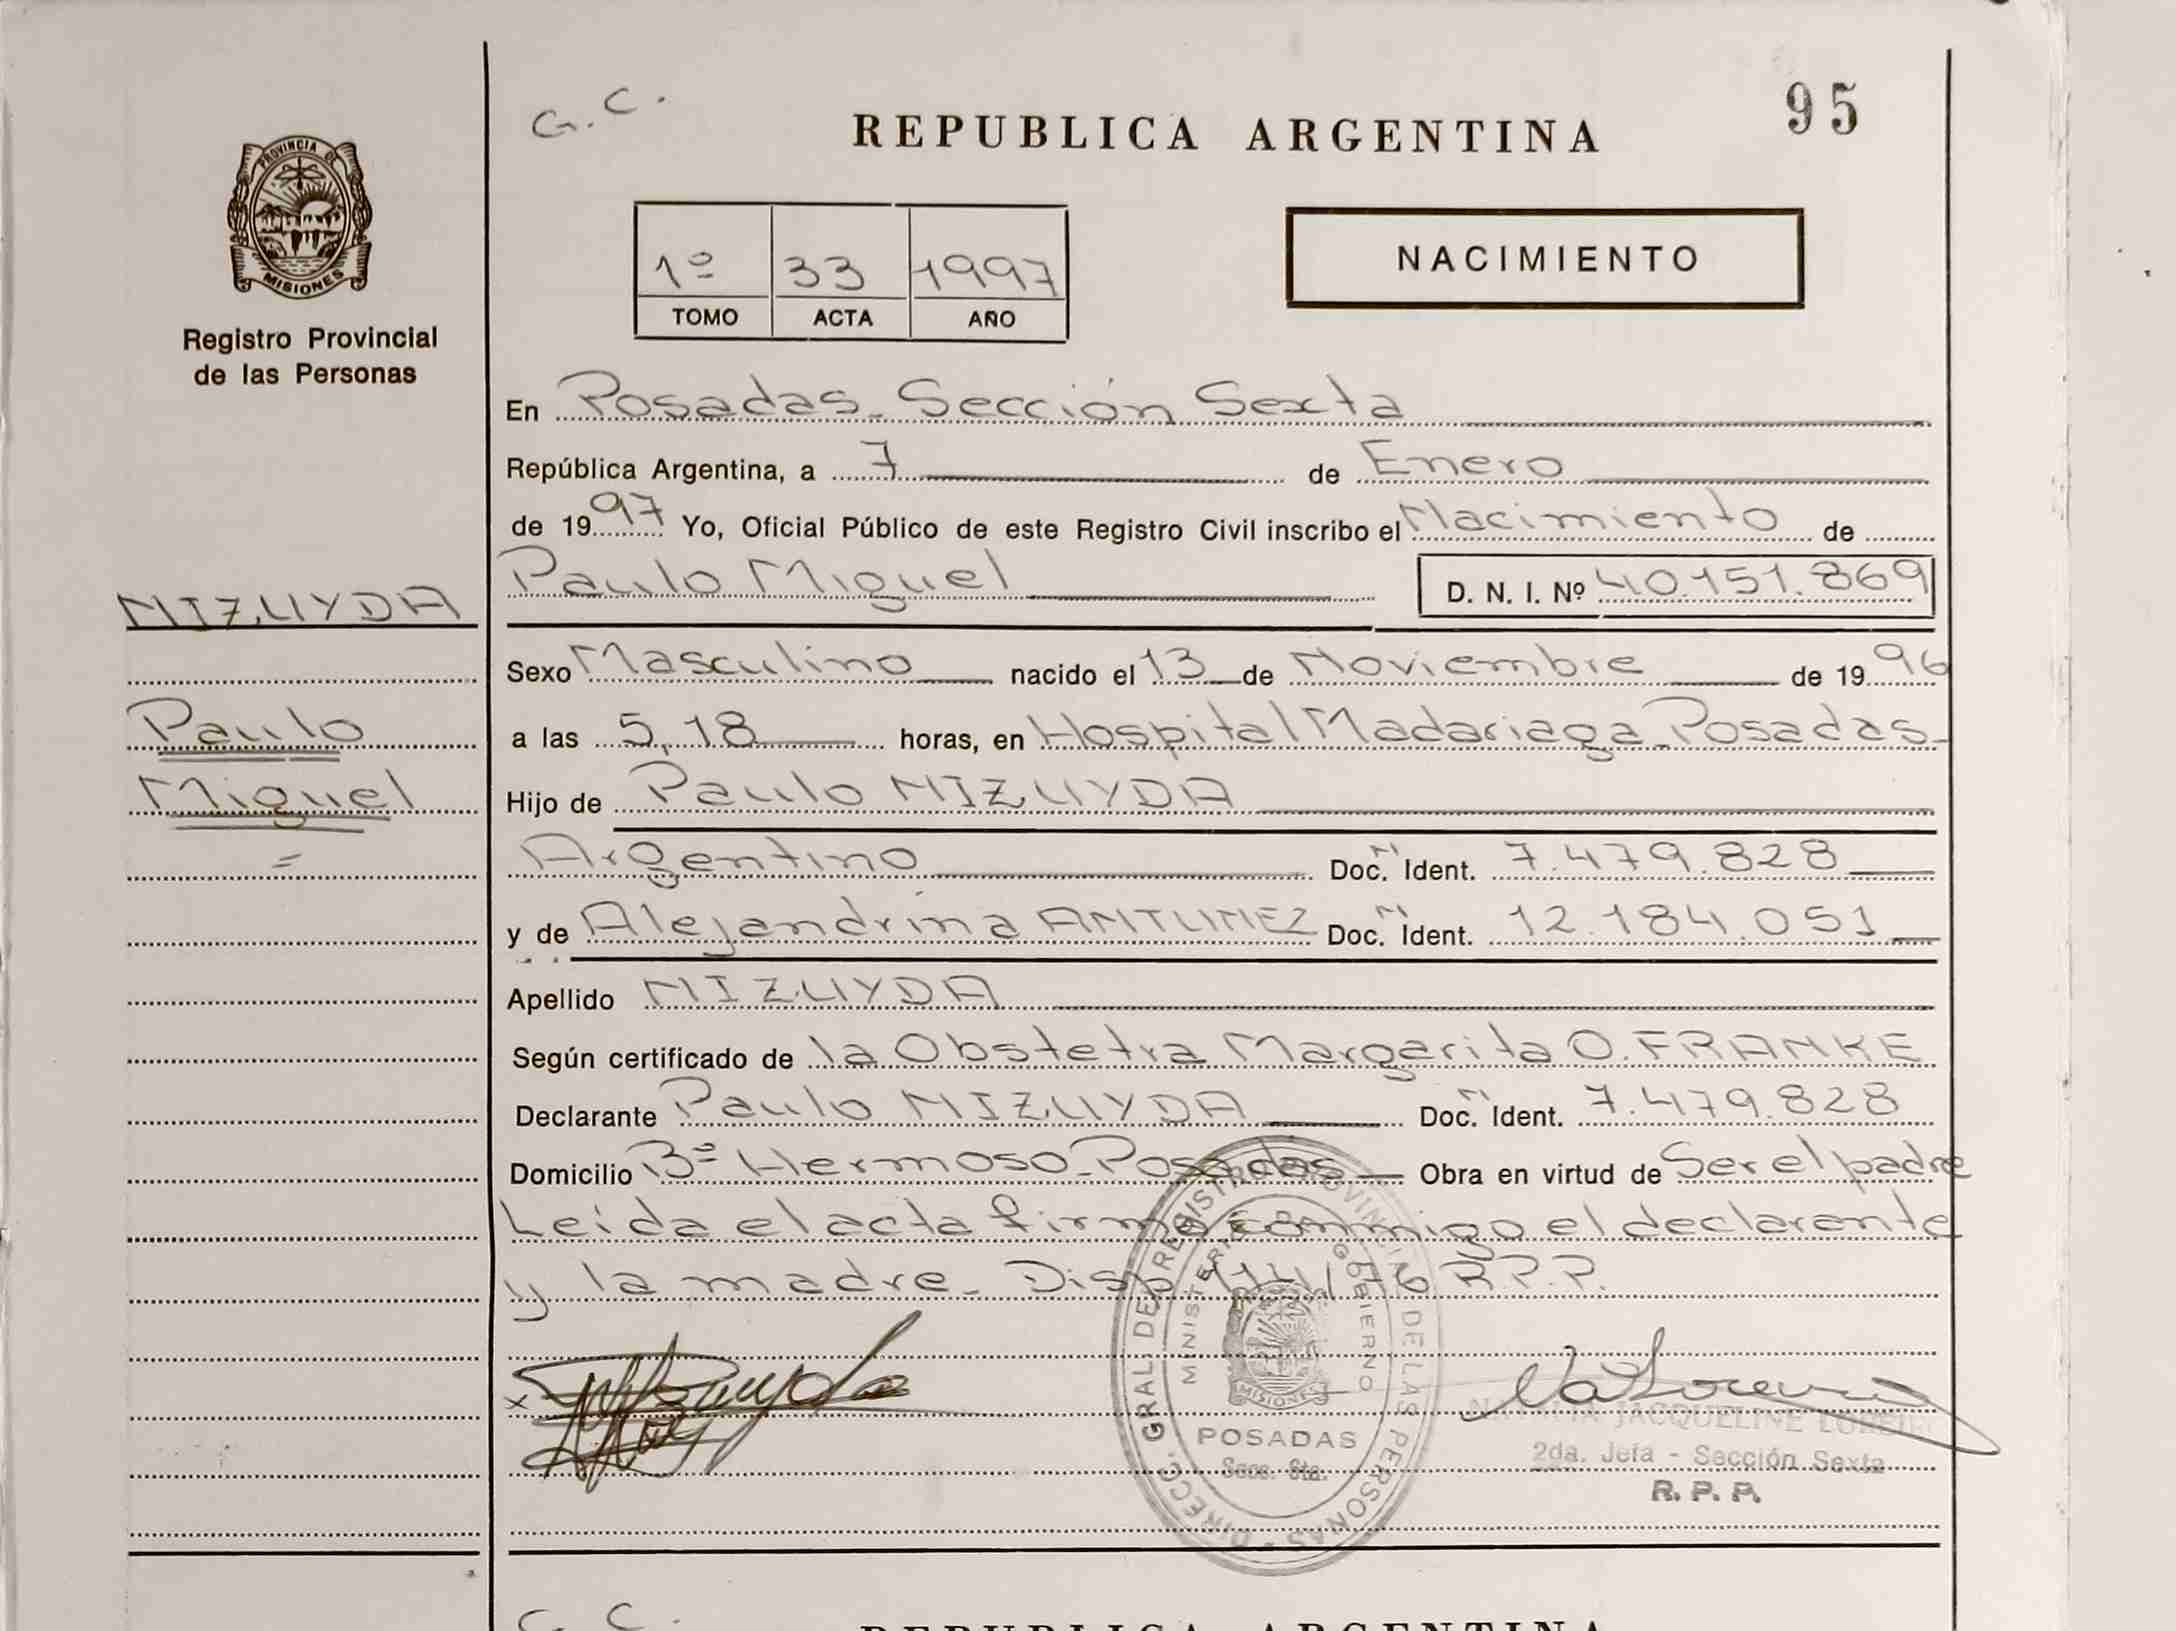 G. C.
95
REPUBLICA ARGENTINA
PROVINCIA DE
MISIONES
Registro Provincial
de las Personas
1º 33 1997
TOMO ACTA AÑO
NACIMIENTO
En Posadas-Sección Sexta
República Argentina, a 7 de Enero
de 1997 Yo, Oficial Público de este Registro Civil inscribo el Nacimiento de
MIZUYDA
Paulo Miguel D. N. I. Nº 40.151.869
Sexo Masculino nacido el 13 de Noviembre de 1996
Paulo
a las 5,18 horas, en Hospital Madariaga-Posadas-
Miguel
Hijo de Paulo MIZUYDA
=
Argentino Doc. N Ident. 7.479.828
y de Alejandrina ANTUNEZ Doc. N Ident. 12.184.051
Apellido MIZUYDA
Según certificado de la Obstetra Margarita O. FRANKE
Declarante Paulo MIZUYDA Doc. N Ident. 7.479.828
Domicilio Bº Hermoso-Posadas- Obra en virtud de Ser el padre
Leída el acta firma conmigo el declarante
y la madre- Disp. /76 R.P.P.
x
DIRECC. GRAL. DEL REGISTRO PROVINCIAL DE LAS PERSONAS
MINISTERIO DE GOBIERNO
MISIONES
POSADAS
Secc. 6ta.
NATALIA JACQUELINE
2da. Jefa - Sección Sexta
R. P. P.
G. C.
REPUBLICA ARGENTINA